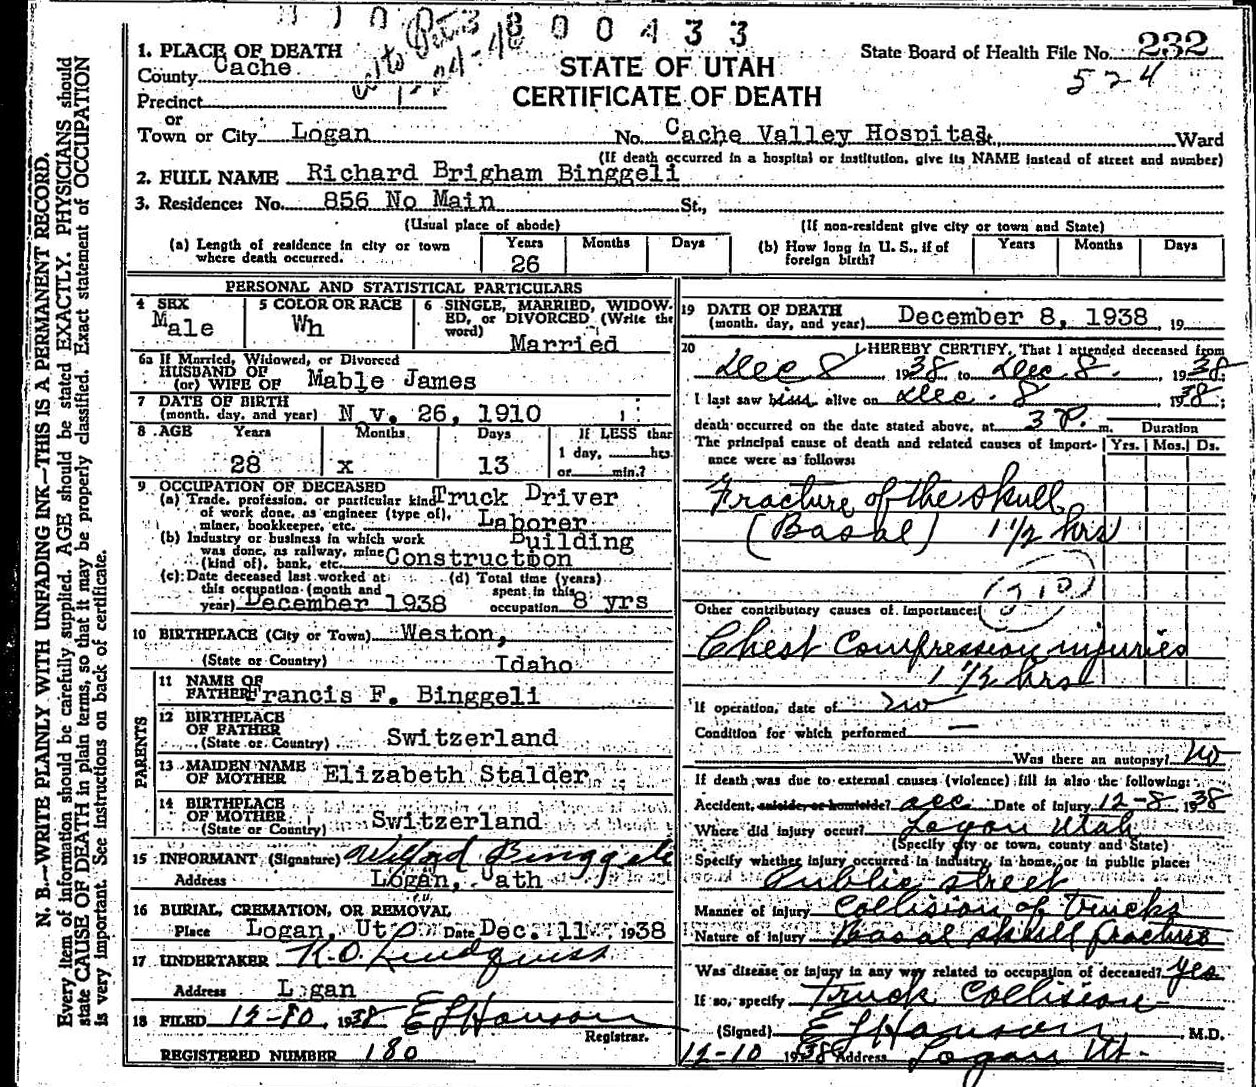 3800433
1. PLACE OF DEATH
County Cache
Precinct
or
Town or City Logan No. Cache Valley Hospital St. Ward
(If death occurred in a hospital or institution, give its NAME instead of street and number)
State Board of Health File No. 232
524
STATE OF UTAH
CERTIFICATE OF DEATH
2. FULL NAME Richard Brigham Binggeli
3. Residence: No. 856 No Main St.,
(Usual place of abode) (If non-resident give city or town and State)
(a) Length of residence in city or town where death occurred. Years 26 Months Days
(b) How long in U. S., if of foreign birth? Years Months Days
PERSONAL AND STATISTICAL PARTICULARS
4 SEX Male
5 COLOR OR RACE Wh
6 SINGLE, MARRIED, WIDOWED, or DIVORCED (Write the word) Married
6a If Married, Widowed, or Divorced
HUSBAND OF
(or) WIFE OF Mable James
7 DATE OF BIRTH
(month, day, and year) N v. 26, 1910
8 AGE Years Months Days If LESS than
28 x 13 1 day, hrs.
or min.?
9 OCCUPATION OF DECEASED
(a) Trade, profession, or particular kind Truck Driver
of work done, as engineer (type of),
miner, bookkeeper, etc. Laborer
(b) Industry or business in which work Building
was done, as railway, mine
(kind of), bank, etc. Construction
(c) Date deceased last worked at
this occupation (month and
year) December 1938
(d) Total time (years)
spent in this
occupation 8 yrs
10 BIRTHPLACE (City or Town) Weston,
(State or Country) Idaho
PARENTS
11 NAME OF
FATHER Francis F. Binggeli
12 BIRTHPLACE
OF FATHER
(State or Country) Switzerland
13 MAIDEN NAME
OF MOTHER Elizabeth Stalder
14 BIRTHPLACE
OF MOTHER
(State or Country) Switzerland
15 INFORMANT (Signature) Wilford Binggeli
Address Logan, Utah
16 BURIAL, CREMATION, OR REMOVAL
Place Logan, Ut Date Dec. 11 1938
17 UNDERTAKER K.O. Lindquist
Address L gan
18 FILED 12-10, 1938 E J Hanson
Registrar.
REGISTERED NUMBER 180
19 DATE OF DEATH
(month, day, and year) December 8, 1938, 19
20 I HEREBY CERTIFY, That I attended deceased from
Dec 8, 1938 to Dec. 8, 1938
I last saw him alive on Dec. 8 1938;
death occurred on the date stated above, at 3 P. m. Duration
The principal cause of death and related causes of importance were as follows: Yrs. Mos. Ds.
Fracture of the skull
(Basal) 1 1/2 hrs
Other contributory causes of importance:
Chest Compression injuries
1 1/2 hrs
If operation, date of no
Condition for which performed —
Was there an autopsy? no
If death was due to external causes (violence) fill in also the following:
Accident, suicide, or homicide? acc Date of injury 12-8 1938
Where did injury occur? Logan Utah
(Specify city or town, county and State)
Specify whether injury occurred in industry, in home, or in public place:
Public street
Manner of injury Collision of trucks
Nature of injury Basal skull fracture
Was disease or injury in any way related to occupation of deceased? yes
If so, specify Truck Collision
(Signed) E J Hanson, M.D.
12-10 1938 Address Logan Ut.
N. B.—WRITE PLAINLY WITH UNFADING INK—THIS IS A PERMANENT RECORD.
Every item of information should be carefully supplied. AGE should be stated EXACTLY. PHYSICIANS should
state CAUSE OF DEATH in plain terms, so that it may be properly classified. Exact statement of OCCUPATION
is very important. See instructions on back of certificate.